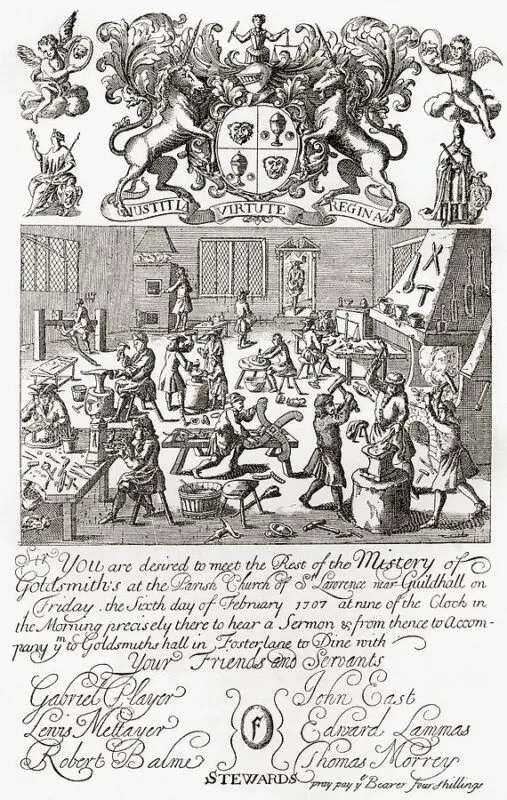 IUSTITIA VIRTUTE REGINA
Sir You are desired to meet the Rest of the Mistery of
Goldsmith's at the Parish Church of St. Lawrence near Guildhall on
Friday the Sixth day of February 1707 at nine of the Clock in
the Morning precisely there to hear a Sermon & from thence to Accom-
pany ym to Goldsmiths hall in Fosterlane to Dine with
Your Friends and Servants
Gabriel Player
Lewis Mettayer
Robert Balme
John East
Edward Lammas
Thomas Morrey
STEWARDS
pray pay ye Bearer four shillings